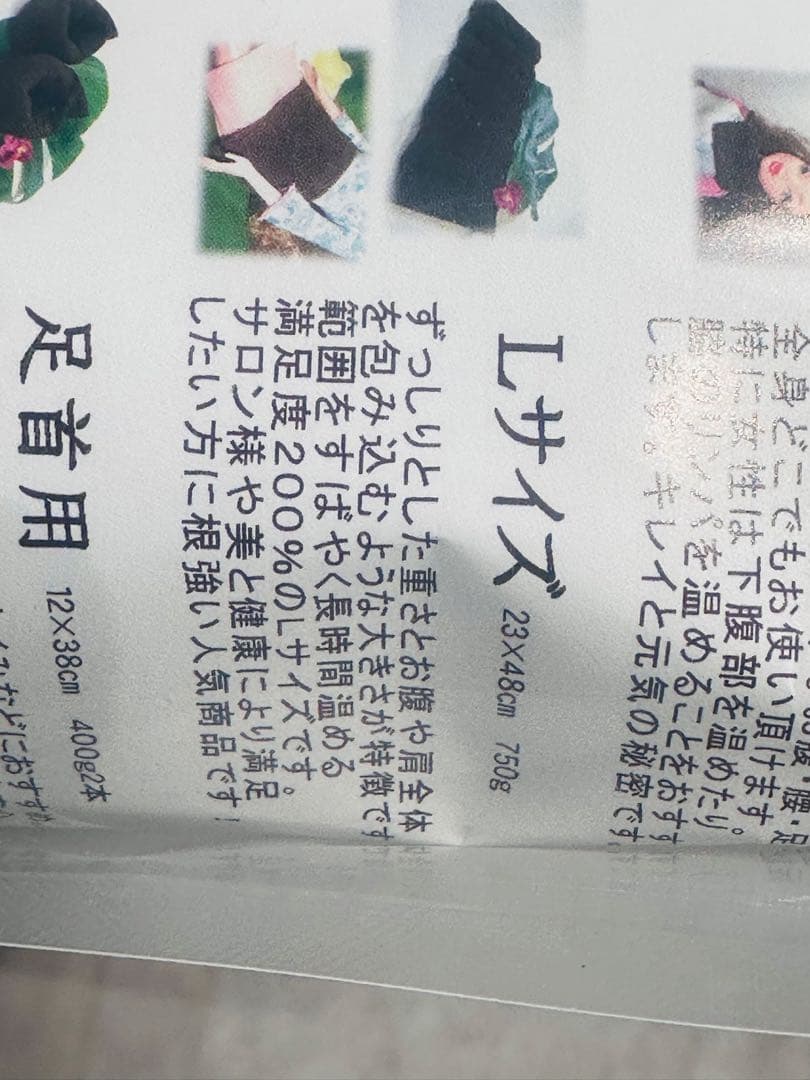 全身どこでもお使い頂けます
特に女性は下腹部を温めたり。
を温めることをおすす
します。キレイと元気の秘密です
Lサイズ 23×48cm 750g
ずっしりとした重さとお腹や肩全体
を包み込むような大きさが特徴です
範囲をすばやく長時間温める
満足度200%のLサイズです。
サロン様や美と健康により満足
したい方に根強い人気商品です!
足首用 12×38cm 400g2本
などにおすすめ